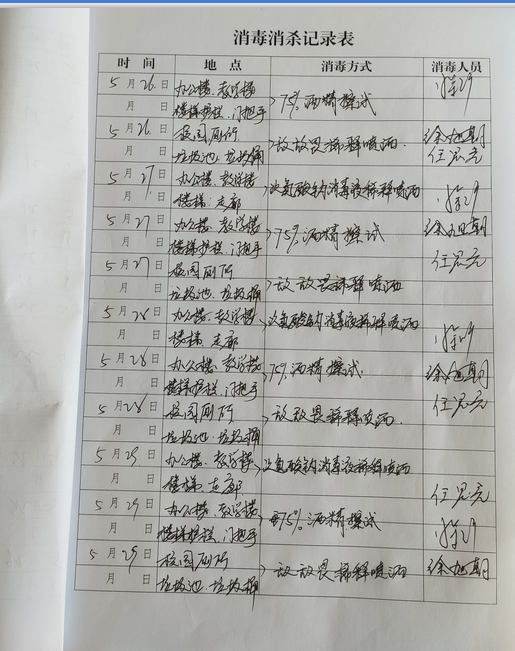 消毒消杀记录表
时 间 地 点 消毒方式 消毒人员
5月26日 办公楼、教学楼
月 日 楼梯扶栏、门把手 75%酒精擦拭
5月26日 校园厕所 徐旭朝
月 日 垃圾池、垃圾桶 敌敌畏稀释喷洒. 任思亮
5月27日 办公楼、教学楼 次氯酸钠消毒液稀释喷洒
月 日 楼梯、走廊
5月27日 办公楼、教学楼 75%酒精擦试 徐旭朝
月 日 楼梯扶栏、门把手
5月27日 校园厕所 任思亮
月 日 垃圾池、垃圾桶 敌敌畏稀释喷洒
5月28日 办公楼、教学楼 次氯酸钠消毒液稀释喷洒
月 日 楼梯、走廊
5月28日 办公楼、教学楼 75%酒精擦试. 徐旭朝
月 日 楼梯扶栏、门把手 任思亮
5月28日 校园厕所 敌敌畏稀释喷洒.
月 日 垃圾池、垃圾桶
5月29日 办公楼、教学楼 次氯酸钠消毒液稀释喷洒
月 日 楼梯、走廊 任思亮
5月29日 办公楼、教学楼 75%酒精擦试
月 日 楼梯扶栏、门把手
5月29日 校园厕所 敌敌畏稀释喷洒 徐旭朝
月 日 垃圾池、垃圾桶